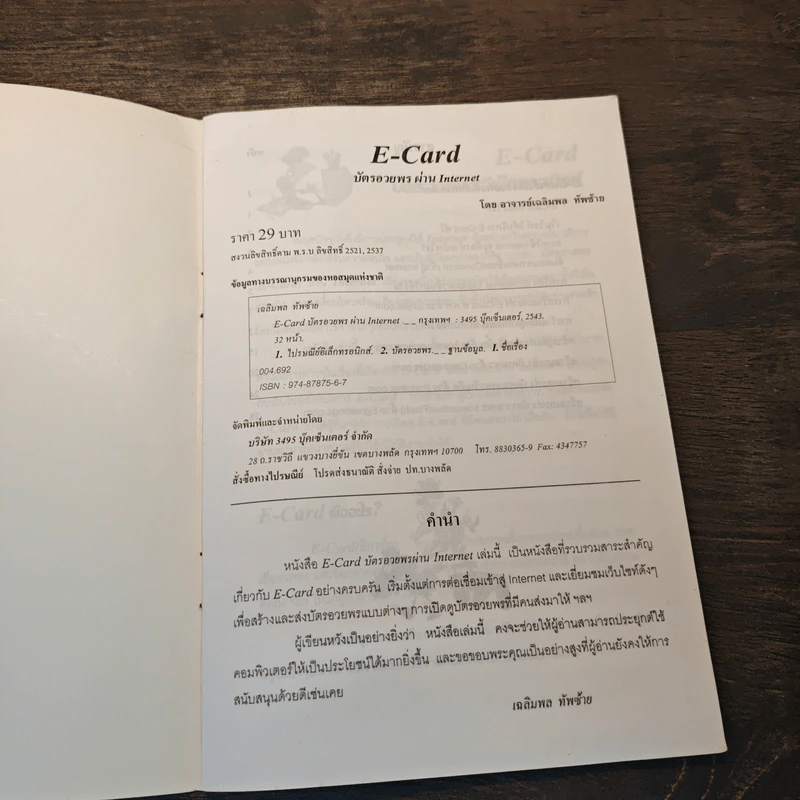 E-Card
บัตรอวยพร ผ่าน Internet
โดย อาจารย์เฉลิมพล ทัพซ้าย
ราคา 29 บาท
สงวนลิขสิทธิ์ตาม พ.ร.บ ลิขสิทธิ์ 2521, 2537
ข้อมูลทางบรรณานุกรมของหอสมุดแห่งชาติ
เฉลิมพล ทัพซ้าย
E-Card บัตรอวยพร ผ่าน Internet ._ _ กรุงเทพฯ : 3495 บุ๊คเซ็นเตอร์, 2543.
32 หน้า.
1. ไปรษณีย์อิเล็กทรอนิกส์. 2. บัตรอวยพร._ _ฐานข้อมูล. I. ชื่อเรื่อง
004.692
ISBN : 974-87875-6-7
จัดพิมพ์และจำหน่ายโดย
บริษัท 3495 บุ๊คเซ็นเตอร์ จำกัด
28 ถ.ราชวิถี แขวงบางยี่ขัน เขตบางพลัด กรุงเทพฯ 10700 โทร. 8830365-9 Fax: 4347757
สั่งซื้อทางไปรษณีย์ โปรดส่งธนาณัติ สั่งจ่าย ปท.บางพลัด
คำนำ
หนังสือ E-Card บัตรอวยพรผ่าน Internet เล่มนี้ เป็นหนังสือที่รวบรวมสาระสำคัญ
เกี่ยวกับ E-Card อย่างครบครัน เริ่มตั้งแต่การต่อเชื่อมเข้าสู่ Internet และเยี่ยมชมเว็บไซท์ดังๆ
เพื่อสร้างและส่งบัตรอวยพรแบบต่างๆ การเปิดดูบัตรอวยพรที่มีคนส่งมาให้ ฯลฯ
ผู้เขียนหวังเป็นอย่างยิ่งว่า หนังสือเล่มนี้ คงจะช่วยให้ผู้อ่านสามารถประยุกต์ใช้
คอมพิวเตอร์ให้เป็นประโยชน์ได้มากยิ่งขึ้น และขอขอบพระคุณเป็นอย่างสูงที่ผู้อ่านยังคงให้การ
สนับสนุนด้วยดีเช่นเคย
เฉลิมพล ทัพซ้าย